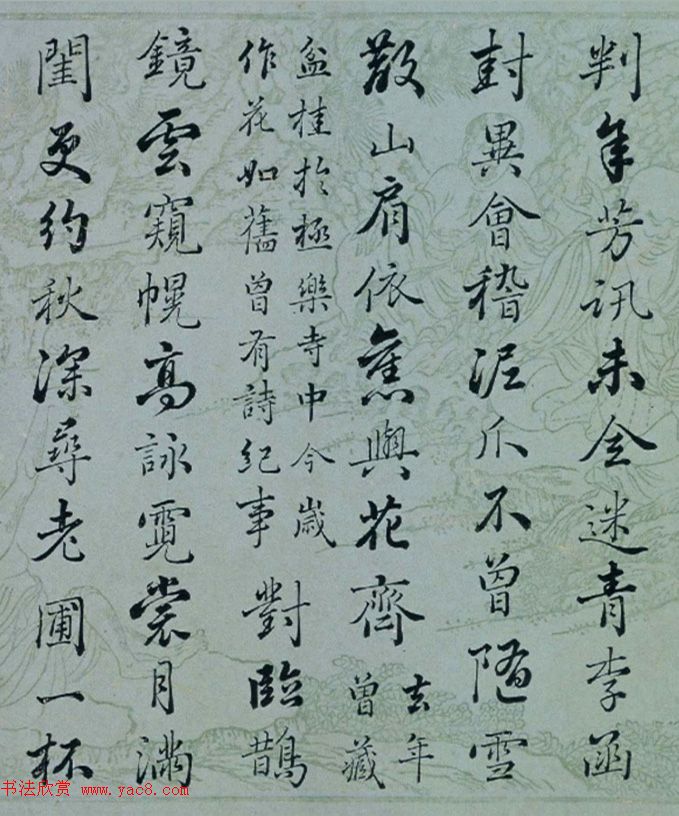 判年芳訊未全迷青李函
封異會稽泥爪不曾隨雪
散山肩依舊與花齊
去年
曾藏
盆桂於極樂寺中今歲
作花如舊曾有詩紀事
對臨鵲
鏡雲窺幌高詠霓裳月滿
閨更約秋深尋老圃一杯
书法欣赏 www.yac8.com